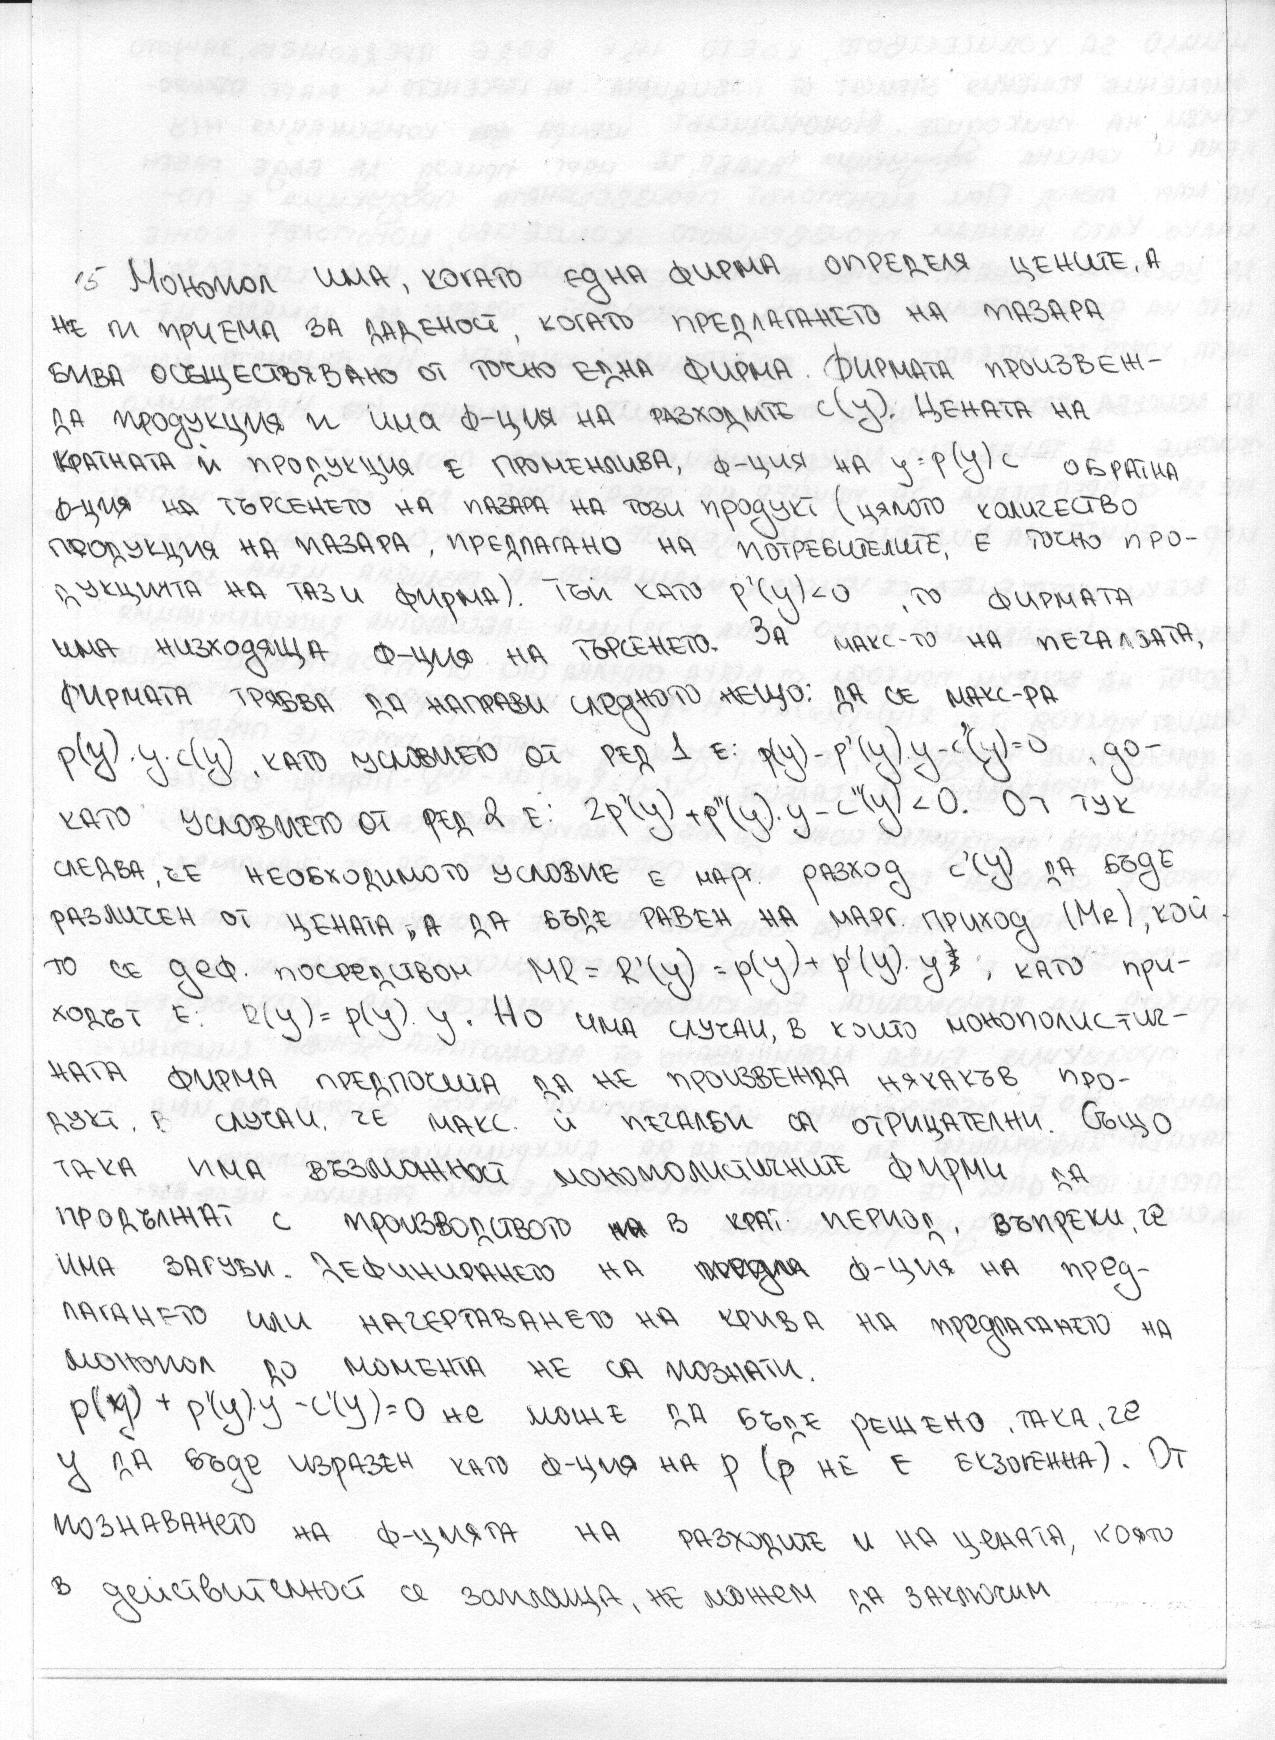 15 Монопол има, когато една фирма определя цените, а
не ги приема за даденост, когато предлагането на пазара
бива осъществявано от точно една фирма. Фирмата произвеж-
да продукция и има ф-ция на разходите c(y). Цената на
кратната й продукция е променлива, ф-ция на y=p(y) с обратна
ф-ция на търсенето на пазара на този продукт (цялото количество
продукция на пазара, предлагано на потребителите, е точно про-
дукцията на тази фирма). Тъй като p'(y)<0, то фирмата
има низходяща ф-ция на търсенето. За макс-то на печалбата,
фирмата трябва да направи следното нещо: да се макс-ра
p(y).y-c(y), като условието от ред 1 е: p(y)-p'(y).y-c'(y)=0, до-
като условието от ред 2 е: 2p'(y)+p''(y).y-c''(y)<0. От тук
следва, че необходимото условие е марг. разход c'(y) да бъде
различен от цената, а да бъде равен на марг. приход (MR), кой-
то се деф. посредством MR=R'(y)=p(y)+p'(y).y, като при-
ходът е: R(y)=p(y).y. Но има случаи, в които монополистич-
ната фирма предпочита да не произвежда някакъв про-
дукт, в случаи, че макс. й печалби са отрицателни. Също
така има възможност монополистичните фирми да
продължат с производството в крат. период, въпреки, че
има загуби. Дефинирането на ф-ция на пред-
лагането или начертаването на крива на предлагането на
монопол до момента не са познати.
p(y)+p'(y).y-c'(y)=0 не може да бъде решено, така, че
y да бъде изразен като ф-ция на p (p не е екзогенна). От
познаването на ф-цията на разходите и на цената, която
в действителност се заплаща, не можем да заключим